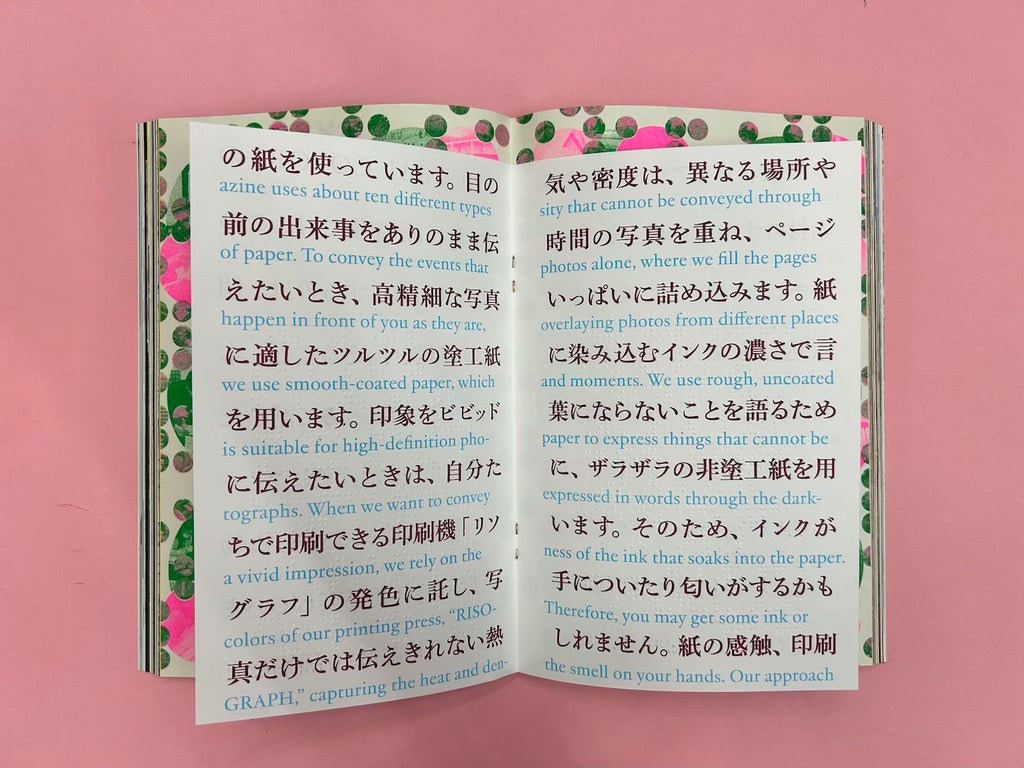 の紙を使っています。目の
azine uses about ten different types
前の出来事をありのまま伝
of paper. To convey the events that
えたいとき、高精細な写真
happen in front of you as they are,
に適したツルツルの塗工紙
we use smooth-coated paper, which
を用います。印象をビビッド
is suitable for high-definition pho-
に伝えたいときは、自分た
tographs. When we want to convey
ちで印刷できる印刷機「リソ
a vivid impression, we rely on the
グラフ」の発色に託し、写
colors of our printing press, “RISO-
真だけでは伝えきれない熱
GRAPH,” capturing the heat and den-
気や密度は、異なる場所や
sity that cannot be conveyed through
時間の写真を重ね、ページ
photos alone, where we fill the pages
いっぱいに詰め込みます。紙
overlaying photos from different places
に染み込むインクの濃さで言
and moments. We use rough, uncoated
葉にならないことを語るため
paper to express things that cannot be
に、ザラザラの非塗工紙を用
expressed in words through the dark-
います。そのため、インクが
ness of the ink that soaks into the paper.
手についたり匂いがするかも
Therefore, you may get some ink or
しれません。紙の感触、印刷
the smell on your hands. Our approach